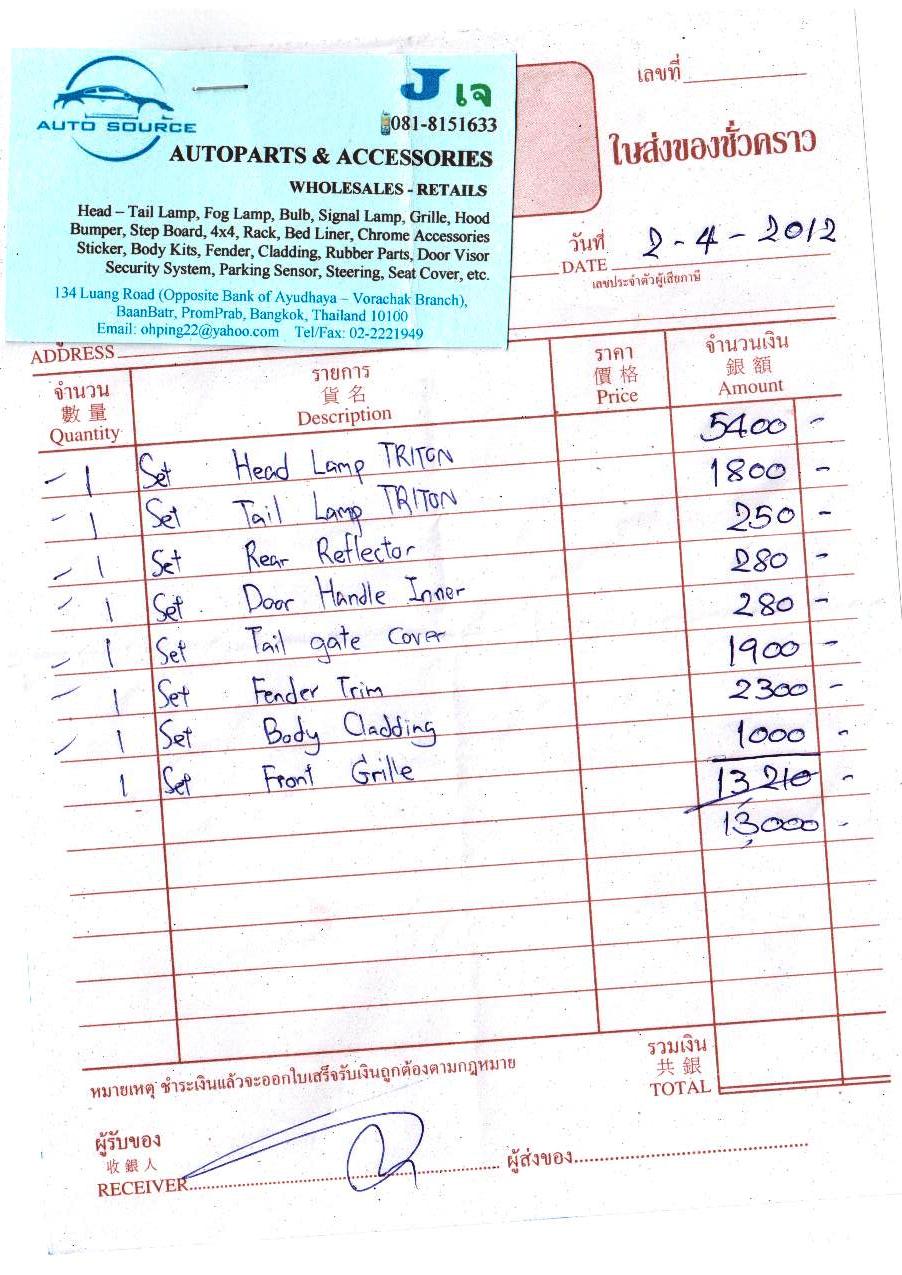 เลขที่
J เจ
081-8151633
AUTO SOURCE
AUTOPARTS & ACCESSORIES
WHOLESALES - RETAILS
Head – Tail Lamp, Fog Lamp, Bulb, Signal Lamp, Grille, Hood
Bumper, Step Board, 4x4, Rack, Bed Liner, Chrome Accessories
Sticker, Body Kits, Fender, Cladding, Rubber Parts, Door Visor
Security System, Parking Sensor, Steering, Seat Cover, etc.
134 Luang Road (Opposite Bank of Ayudhaya – Vorachak Branch),
BaanBatr, PromPrab, Bangkok, Thailand 10100
Email: ohping22@yahoo.com Tel/Fax: 02-2221949
ใบส่งของชั่วคราว
วันที่ 2-4-2012
DATE
เลขประจำตัวผู้เสียภาษี
ADDRESS
จำนวน รายการ ราคา จำนวนเงิน
數量 貨名 價格 銀額
Quantity Description Price Amount
- 1 Set Head Lamp TRITON 5400 -
- 1 Set Tail Lamp TRITON 1800 -
- 1 Set Rear Reflector 250 -
- 1 Set Door Handle Inner 280 -
- 1 Set Tail gate cover 280 -
- 1 Set Fender Trim 1900 -
- 1 Set Body Cladding 2300 -
1 Set Front Grille 1000 -
13210 -
13000 -
รวมเงิน
共銀
TOTAL
หมายเหตุ ชำระเงินแล้วจะออกใบเสร็จรับเงินถูกต้องตามกฎหมาย
ผู้รับของ
收銀人
RECEIVER
ผู้ส่งของ